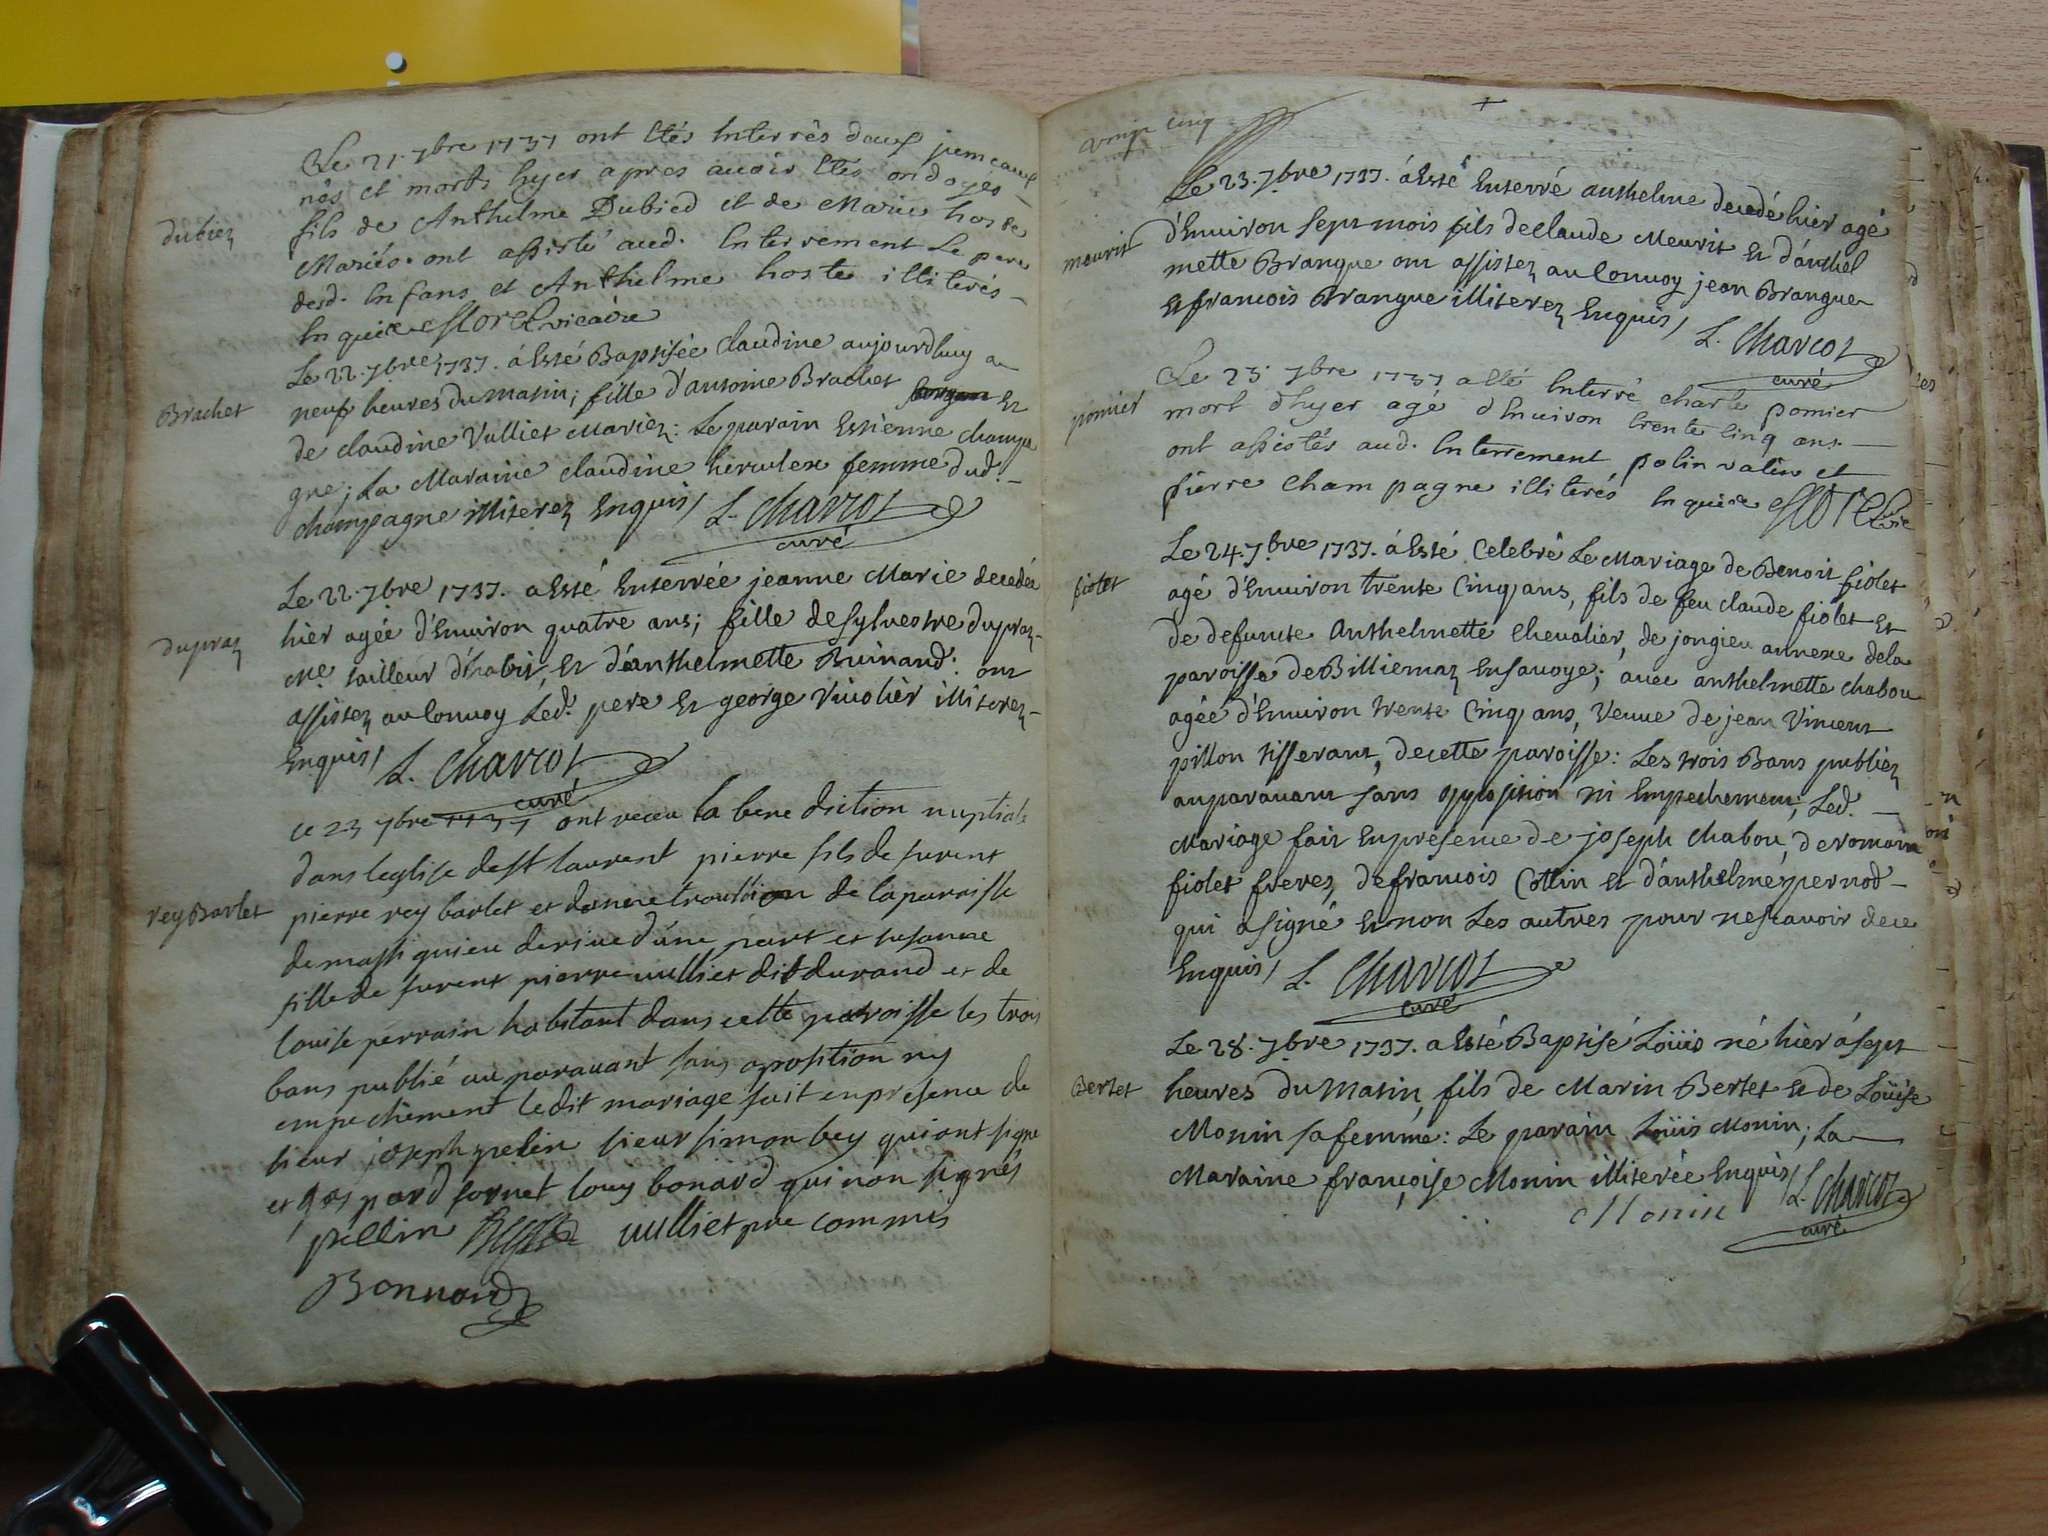 Le 21. 7bre 1737 ont Etés Interrés deux jumeaux
nés et morts hyer apres auoir Etés ondoyés
dubiez
fils de Anthelme Dubied et de Marie hoste
Mariés. ont assisté aud. Interrement Le pere
desd. Enfans et Anthelme hoste illiterés
Enquis vicaire
Le 22. 7bre 1737. á Esté Baptisée Claudine aujourdhuy a
Brachet
neuf heures du matin; fille d'antoine Brachet Et
de claudine Vulliet Mariez: Le parain Estienne champa
gne; La Maraine claudine herculex femme dud.
champagne illiterez Enquis / L. Charcot
curé
Le 22. 7bre 1737. a Esté Enterrée jeanne Marie decedée
hier agée d'Enuiron quatre ans; fille de Sylvestre dupraz
dupraz
me. tailleur d'habit, Et d'anthelmette Buinand: ont
assistez au Conuoy Led. pere Et george Vuiolier illiterez
Enquis / L. Charcot
curé
ce 23 7bre 1737 ont receu la bene diction nuptiale
dans leglise de st laurent pierre fils de furent
rey Barlet
pierre rey barlet et de la paroisse
de massiguieu de riue d'une part et susanne
fille de furent pierre uulliet dit durand et de
louise perrain habitant dans cette paroisse les trois
bans publié au parauant sans oposition ny
empechement ledit mariage fait en presence de
sieur joseph pelin sieur simon bey qui ont signe
et gaspard fornet louy bonard qui non signés
pellin uulliet pre commis
Bonnard
vingt cinq
Le 23. 7bre 1737. á Esté Enterré anthelme decedé hier agé
meurit
d'Enuiron sept mois fils de Claude Meurit Et d'anthel
mette Brangue ont assistez au Conuoy jean Brangue
Et francois Brangue illiterez Enquis / L. Charcot
curé
Le 23. 7bre 1737 a Eté Interré charle pomier
pomier
mort d'hyer agé d'Enuiron trente cinq ans.
ont assistés aud. Interrement polin valin et
pierre Champagne illiterés Enquis
Le 24. 7bre 1737. á Esté Celebré Le Mariage de Benoit fiolet
fiolet
agé d'Enuiron trente Cinq ans, fils de feu claude fiolet Et
de defuncte Anthelmette Chevalier, de jongieu annexe de la
paroisse de Billiemaz En sauoye; auec anthelmette chabou
agée d'Enuiron trente Cinq ans, Veuue de jean Vincent
pillon tisserant, de cette paroisse: Les trois Bans publiez
auparauant sans opposition ni Empechement; Led.
Mariage fait En presence de joseph chabou, de romain
fiolet freres, de francois Collin Et d'anthelme pernod
qui a signé Et non Les autres pour ne scauoir de ce
Enquis / L. Charcot
curé
Le 28. 7bre 1737. a Esté Baptisé Loüis né hier á sept
Bertet
heures du matin, fils de Marin Bertet Et de Loüise
Monin sa femme: Le parain Loüis Monin; La
Maraine françoise Monin illiterée Enquis / L. Charcot
Monin
curé